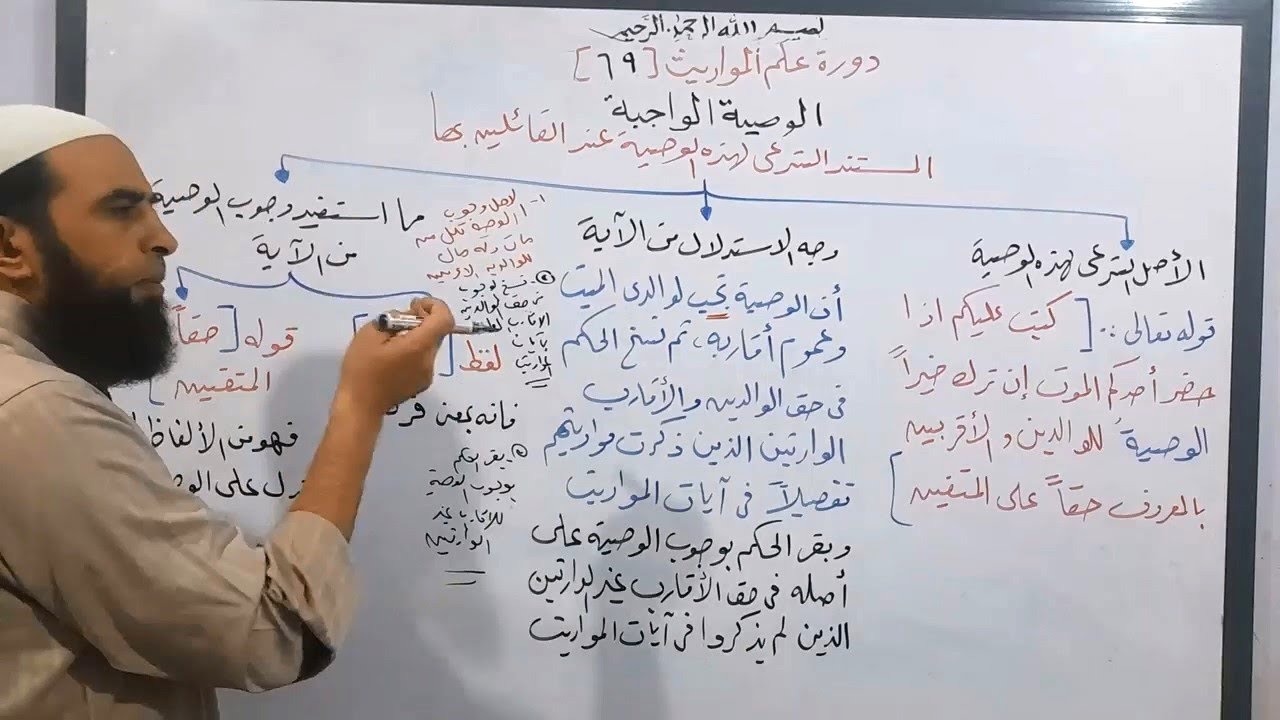 بسم الله الرحمن الرحيم
دورة علم المواريث [٦٩]
الوصية الواجبة
المستند الشرعى لهذه الوصية عند القائلين بها
الأصل الشرعى لهذه الوصية
قوله تعالى: [كتب عليكم اذا
حضر أحدكم الموت إن ترك خيراً
الوصية للوالدين والأقربين
بالمعروف حقاً على المتقين]
وجه الاستدلال من الآية
أن الوصية تجب لوالدى الميت
وعموم أقاربه، ثم نسخ الحكم
فى حق الوالدين والأقارب
الوارثين الذين ذكرت مواريثهم
تفصيلاً فى آيات المواريث
وبقى الحكم بوجوب الوصية على
أصله فى حق الأقارب غير الوارثين
الذين لم يذكروا فى آيات المواريث
١- الاصل وجوب
الوصية لكل من
مات وله مال
للوالدين والاقربين
٢- نسخ الوجوب
فى حق الوالدين
الاقارب
بآيات
المواريث
٣- بقى الحكم
بوجوب الوصية
للاقارب غير
الوارثين
مما استفيد وجوب الوصية
من الآية
لفظ [
فانه بمعنى
قوله [حقاً
المتقين]
فهو من الألفاظ
تدل على